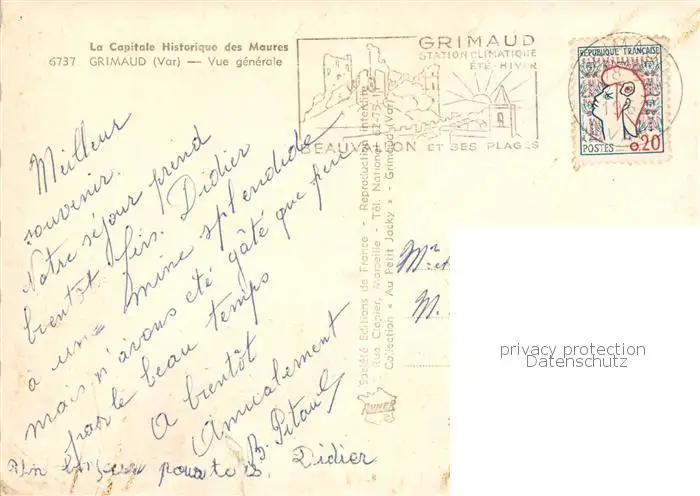 La Capitale Historique des Maures
6737 GRIMAUD (Var) — Vue générale
GRIMAUD
STATION CLIMATIQUE
ÉTÉ - HIVER
BEAUVALLON ET SES PLAGES
RÉPUBLIQUE FRANÇAISE
POSTES 0,20
Meilleur
souvenir.
Notre séjour prend
bientôt fin. Didier
à une mine splendide
mais n'avons été gâté que peu
par le beau temps
A bientôt
Amicalement
B. Pitaud
bonjour pour te Didier
Société Editions de France - Reproduction interdite
Rue Clapier, Marseille - Tél. National 62-75
Collection « Au Petit Jacky » - Grimaud (Var)
M.
privacy protection
Datenschutz